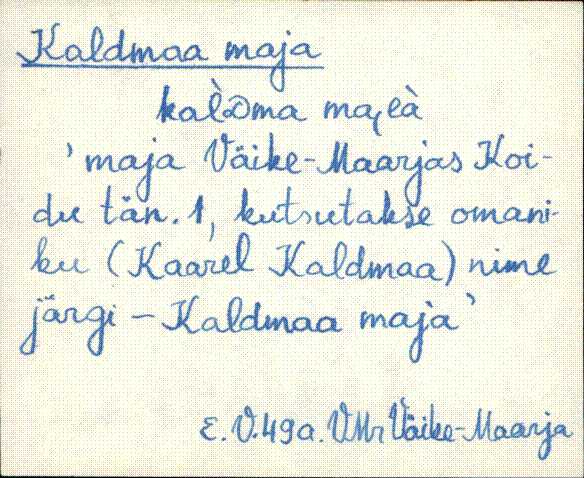 Kaldmaa maja
kal̀ᴅma ma᎐eà
'maja Väike-Maarjas Koi-
du tän. 1, kutsutakse omani-
ku (Kaarel Kaldmaa) nime
järgi – Kaldmaa maja'
E. V. 49a. VMr Väike-Maarja